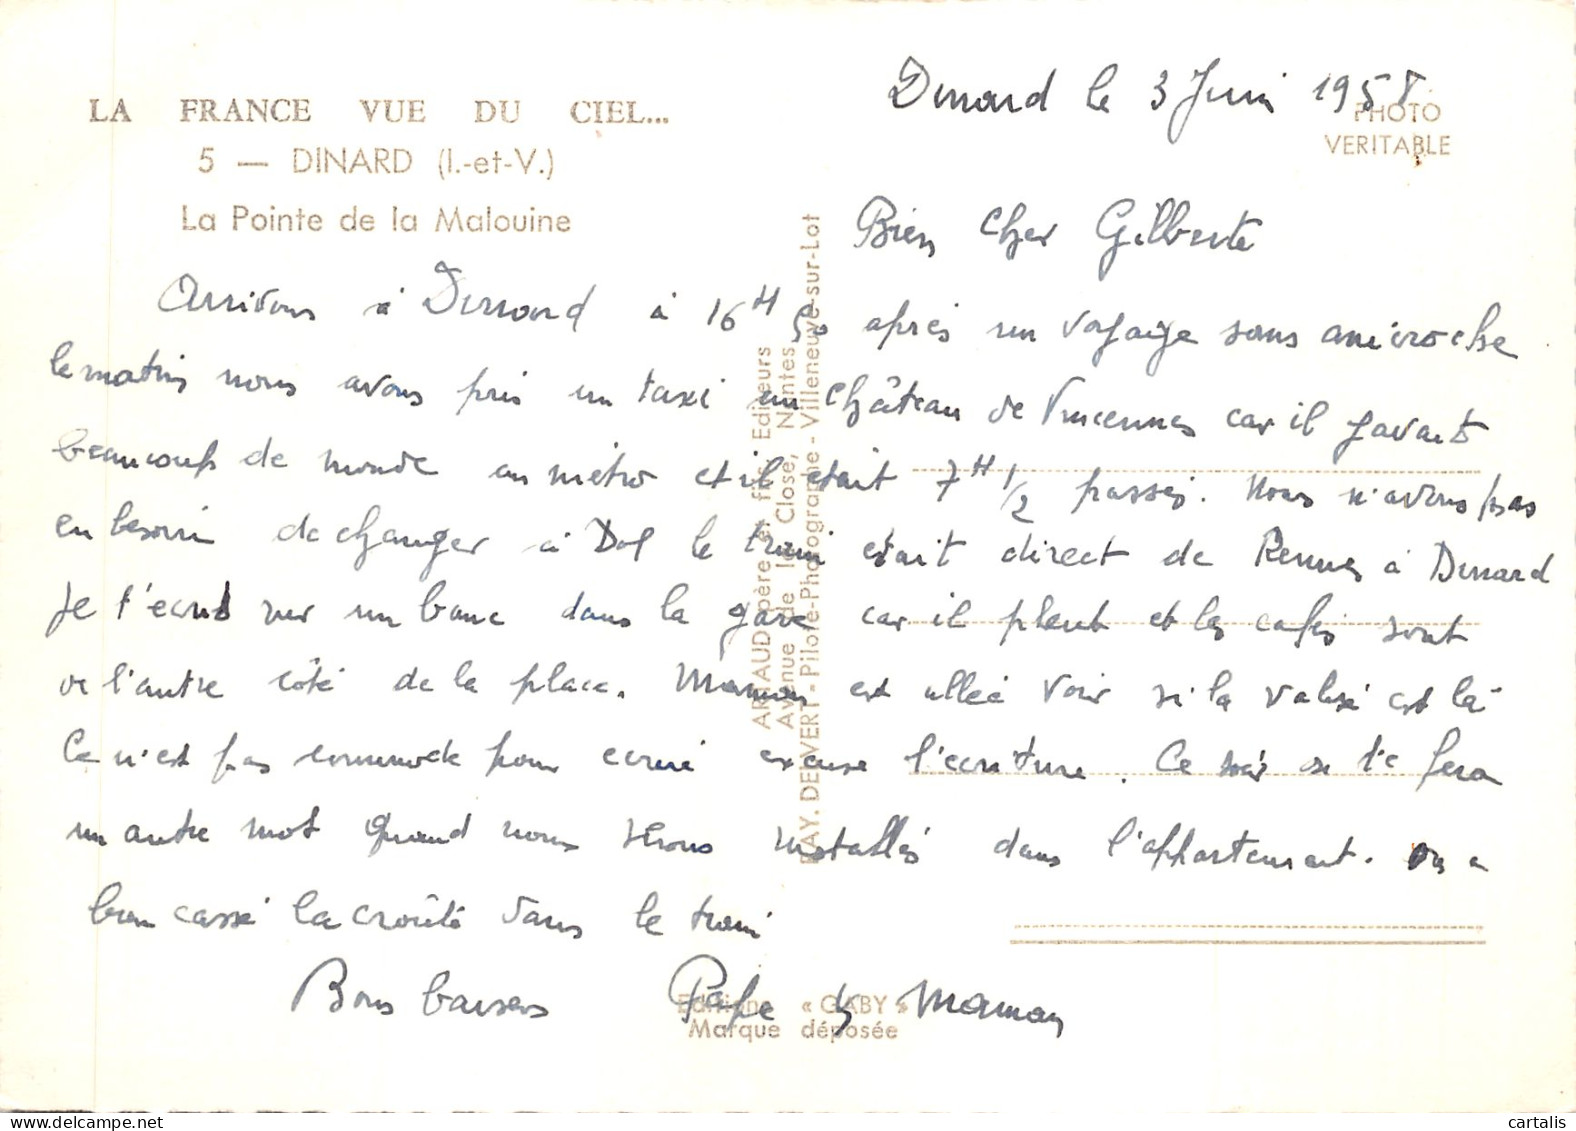 Dinard le 3 Juin 1958
LA FRANCE VUE DU CIEL...
PHOTO
VERITABLE
5 — DINARD (I.-et-V.)
La Pointe de la Malouine
Bien cher Gilberte
Arrivons à Dinard à 16H 50 après un voyage sans anicroche
le matin nous avons pris un taxi au Château de Vincennes car il y avait
beaucoup de monde au métro et il était 7H 1/2 passés. Nous n'avons pas
eu besoin de changer à Dol le train était direct de Rennes à Dinard
Je t'écris sur un banc dans la gare car il pleut et les cafés sont
de l'autre côté de la place. Maman est allée voir si la valise est là
Ce n'est pas commode pour écrire excuse l'écriture. Ce soir on te fera
un autre mot quand nous serons installés dans l'appartement. On a
bien cassé la croûte dans le train
Bons baisers Papa et Maman
ARTAUD père et fils, Editeurs
Avenue de la Close, Nantes
RAY. DELVERT - Pilote-Photographe - Villeneuve-sur-Lot
Editions « GABY »
Marque déposée
cartalis